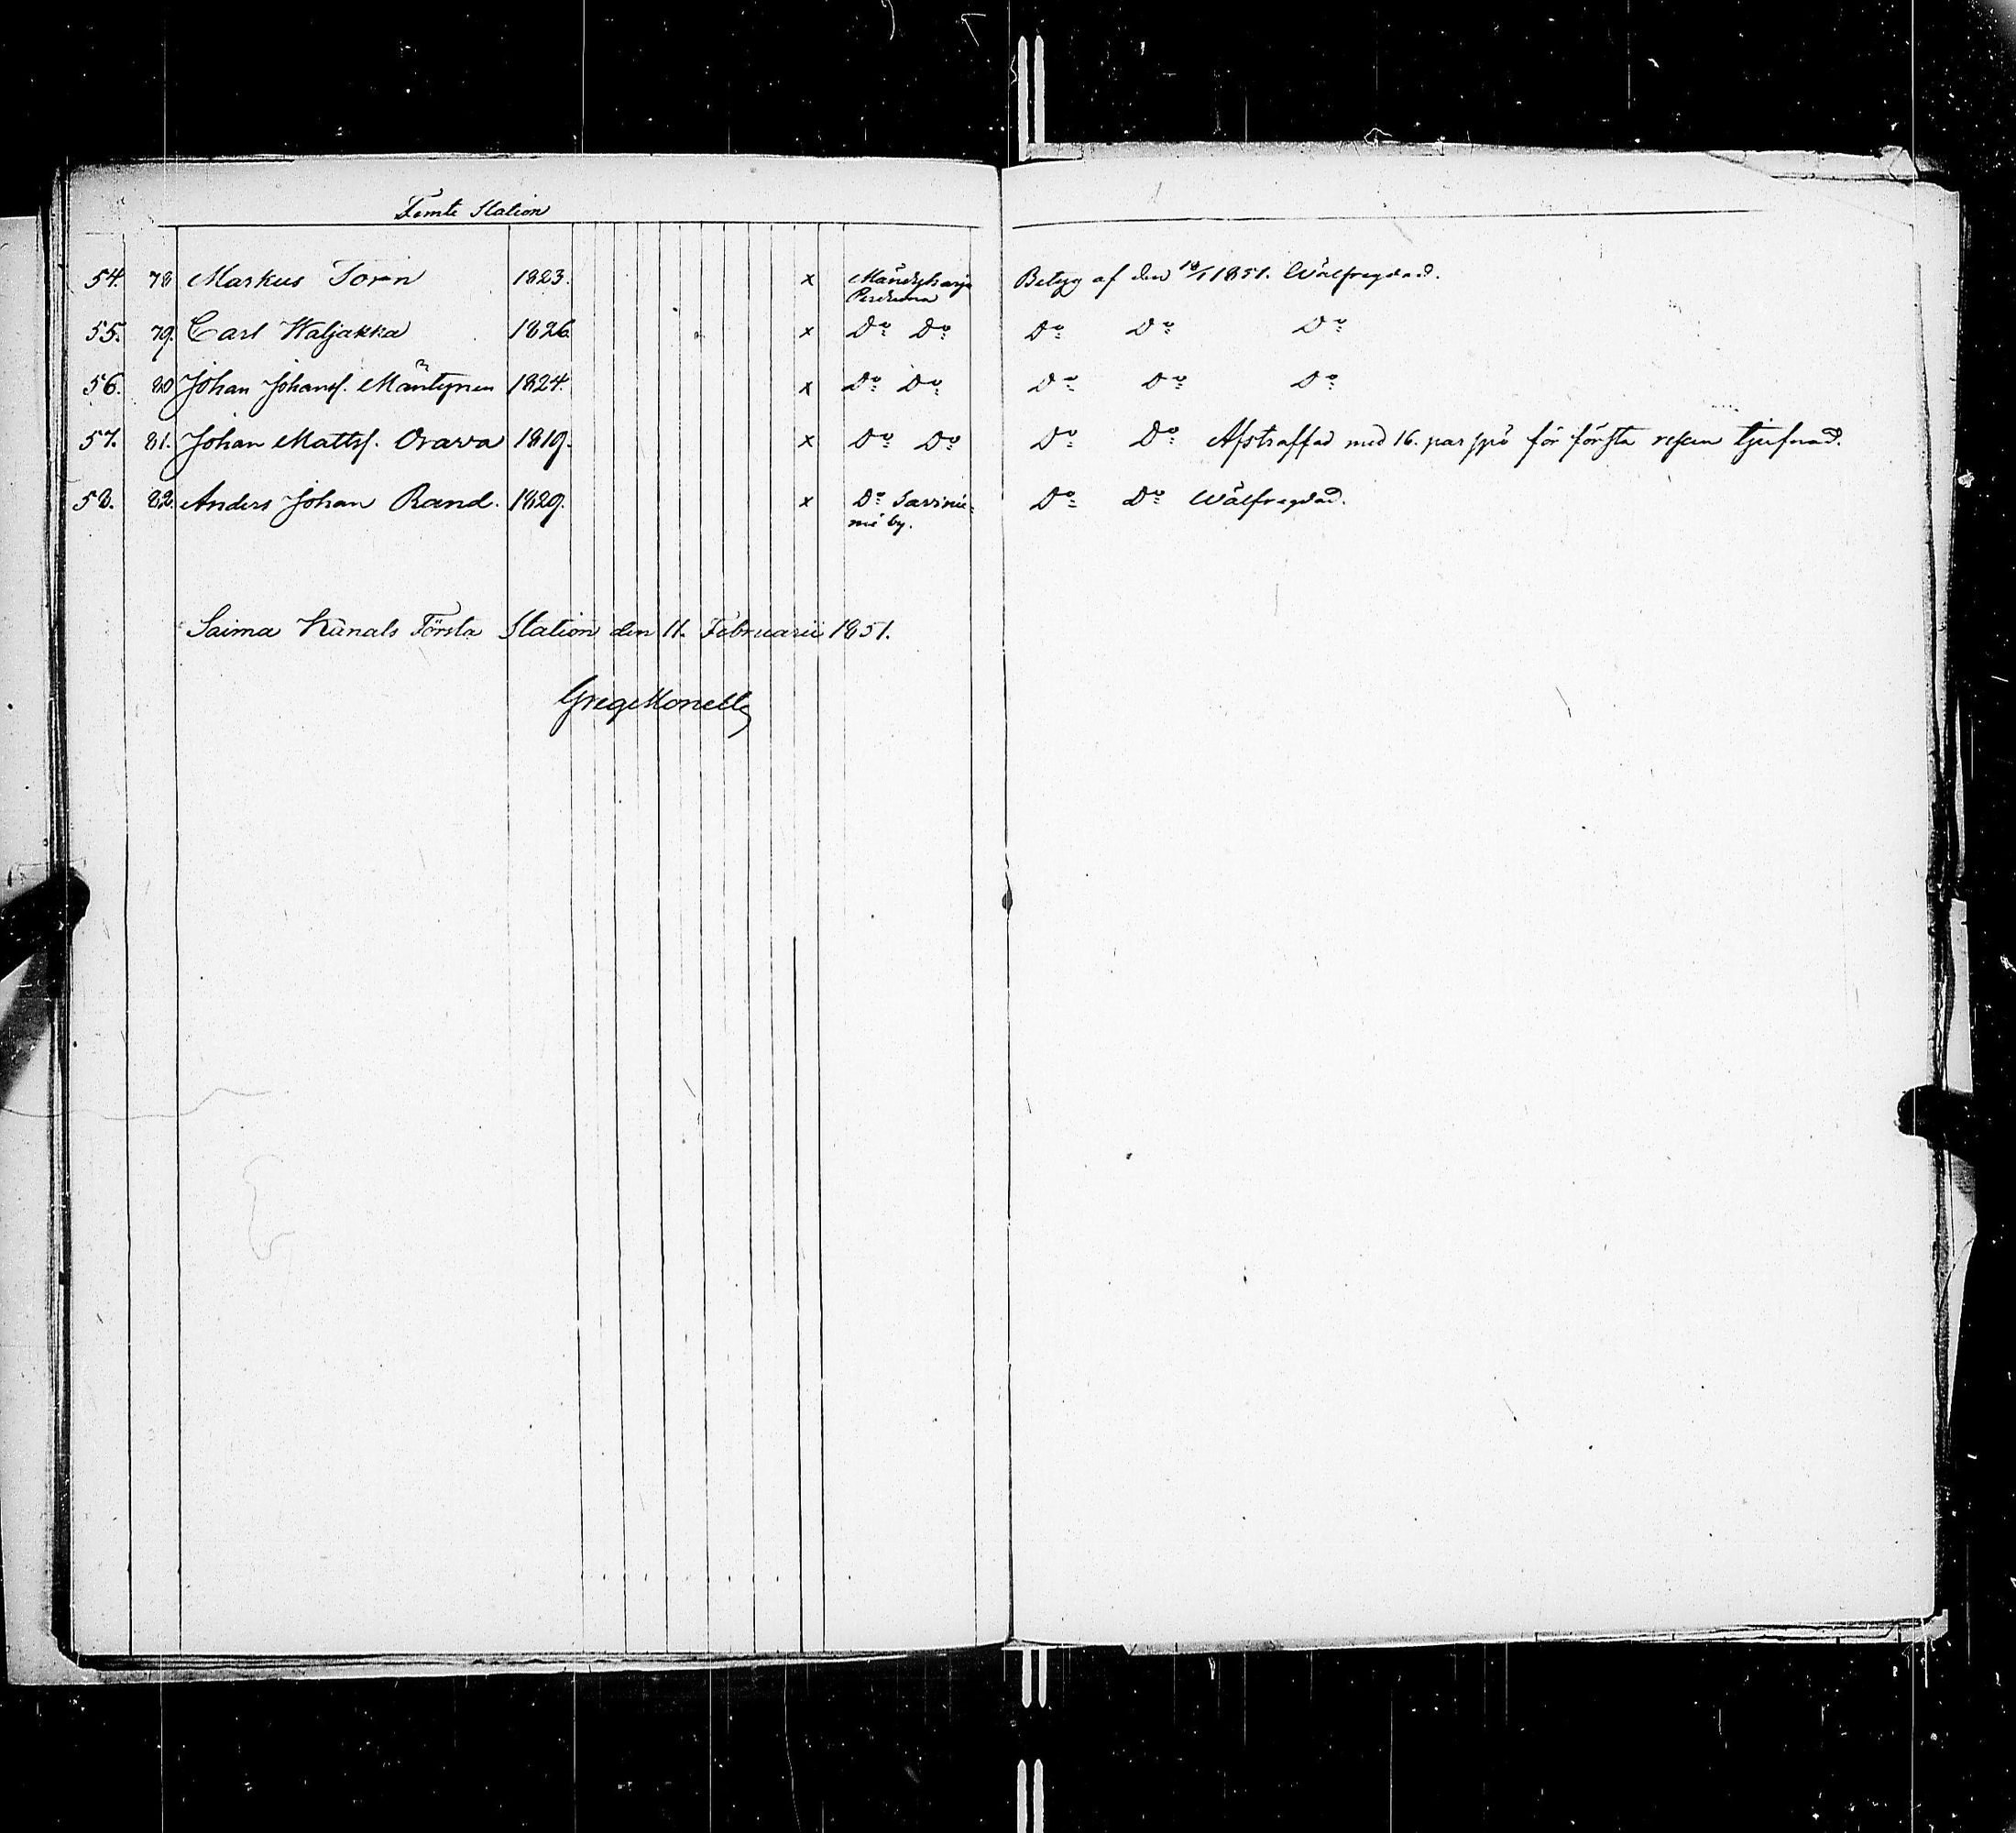 Femte Station
54. 78 Markus Toren 1823. x Mäntyharju Betyg af den 18/1 1851. Wälfregdad.
55. 79. Carl Waljakka 1826. x Do Do Do Do Do
56. 80 Johan Johansf. Mäntynen 1824. x Do Do Do Do Do
57. 81. Johan Mattsf. Orava 1819. x Do Do Do Do Afstraffad med 16. par spö för första resan tjufnad.
58. 82. Anders Johan Rand. 1829. x Do Savinie= Do Do Wälfregdad.
mi by.
Saima Kanals Första Station den 11. Februarii 1851.
Greg Monell